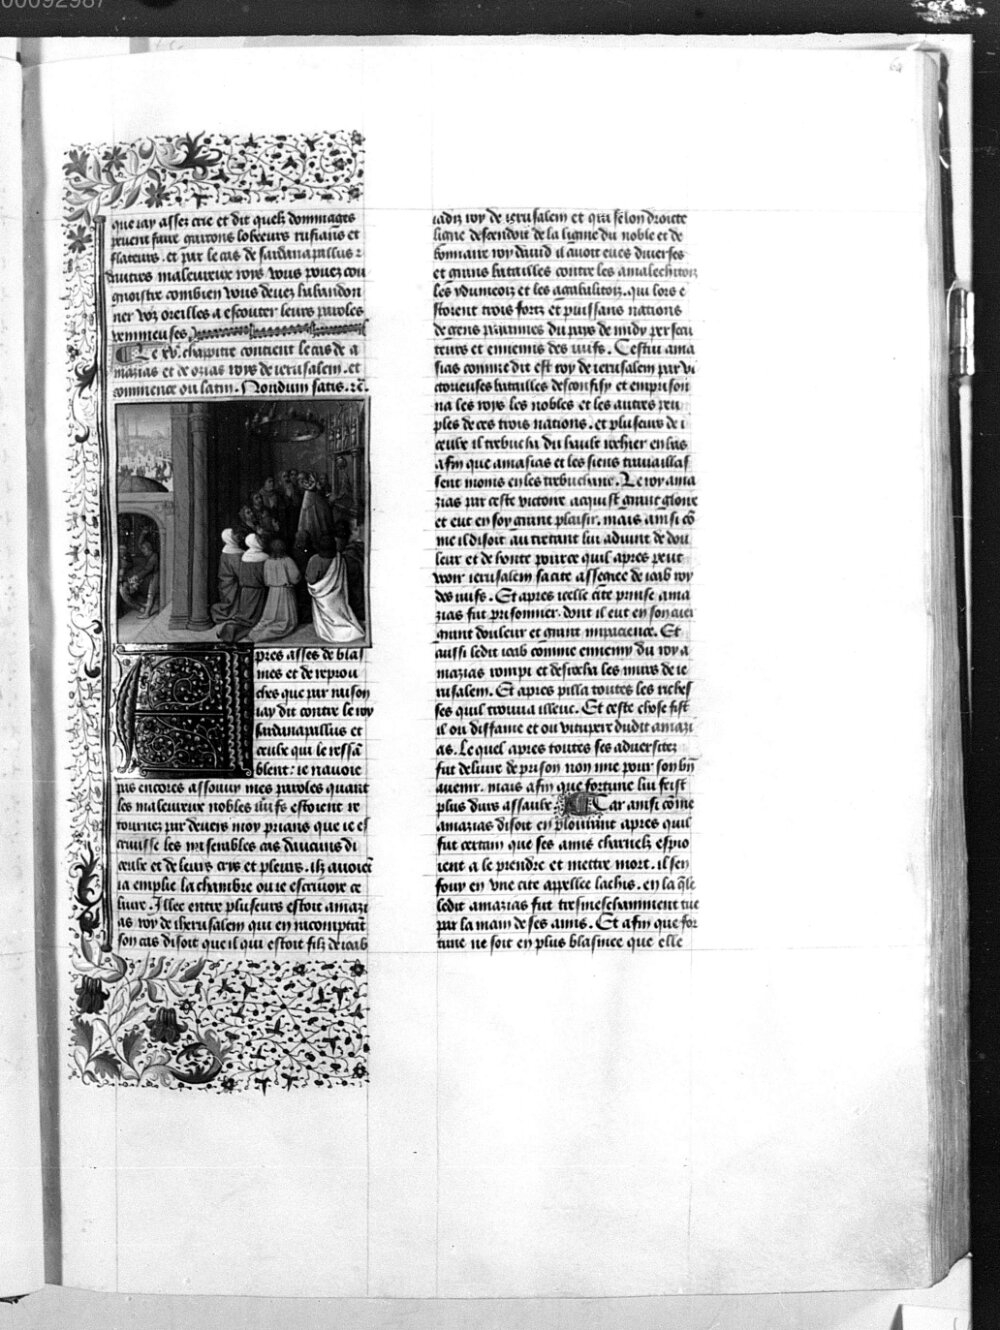 00092987
64
que iay assez crie et dit quelz dommages
peuent faire garcons lobeeurs rufians et
flateurs. et par le cas de sardanapallus ⁊
dautres maleureux roys vous pouez con
gnoistre combien vous deuez habandon
ner voz oreilles a escouter leurs paroles
venimeuses
Le xv. chapitre contient le cas de a
mazias et de ozias roys de ierusalem. et
commence ou latin. Nondum satis. ⁊c.
Apres asses de blas
mes et de reprou
ches que par raison
iay dit contre le roy
sardanapallus et
ceulx qui le ressā
blent: ie nauoie
pas encores assouuy mes paroles quant
les maleureux nobles iuifs estoient re
tournez par deuers moy prians que ie es
criuisse les miserables cas daucuns di
ceulx et de leurs crys et pleurs. ilz auoiēt
ia emplie la chambre ou ie escriuoie ce
liure. Illec entre plusieurs estoit amazi
as roy de iherusalem qui en racomptāt
son cas disoit que il qui estoit filz de ioab
iadiz roy de ierusalem et qui selon droicte
ligne descendoit de la ligne du noble et de
bonnaire roy dauid il auoit eues diuerses
et grans batailles contre les amalechitois
les ydumeois et les agabalitois. qui lors e
stoient trois fortz et puissans nations
de gens paiennes du pays de midy persecu
teurs et ennemis des iuifs. Cestui ama
sias comme dit est roy de ierusalem par vi
ctorieuses batailles desconfisy et emprison
na les roys les nobles et les autres peu
ples de ces trois nations. et plusieurs de i
ceulx il trebucha du hault rochier en bas
afin que amasias et les siens trauaillas
sent moins en les trebuchant. Le roy ama
zias par ceste victoire acquist grant gloire
et eut en soy grant plaisir. mais ainsi cō
me il disoit au tretant lui aduint de dou
leur et de honte pource quil apres peut
veoir ierusalem sa cite assegiee de ioab roy
des iuifs. Et apres icelle cite prinse ama
zias fut prisonnier. dont il eut en son cuer
grant douleur et grant impacience. Et
aussi ledit ioab comme ennemy du roy a
mazias rompi et desrocha les murs de ie
rusalem. Et apres pilla toutes les riches
ses quil trouua illeuc. Et ceste chose fist
il ou diffame et ou vitupere dudit amazi
as. Lequel apres toutes ses aduersitez
fut deliure de prison non mie pour son bn̄
auenir. mais afin que fortune lui feist
plus durs assaulx. Car ainsi cōme
amazias disoit en plourant apres quil
fut certain que ses amis charnelz espio
ient a le prendre et mettre mort. il sen
fouy en vne cite appellee lachis. en la q̄le
ledit amazias fut tresmeschamment tue
par la main de ses amis. Et afin que for
tune ne soit en plus blasmee que elle